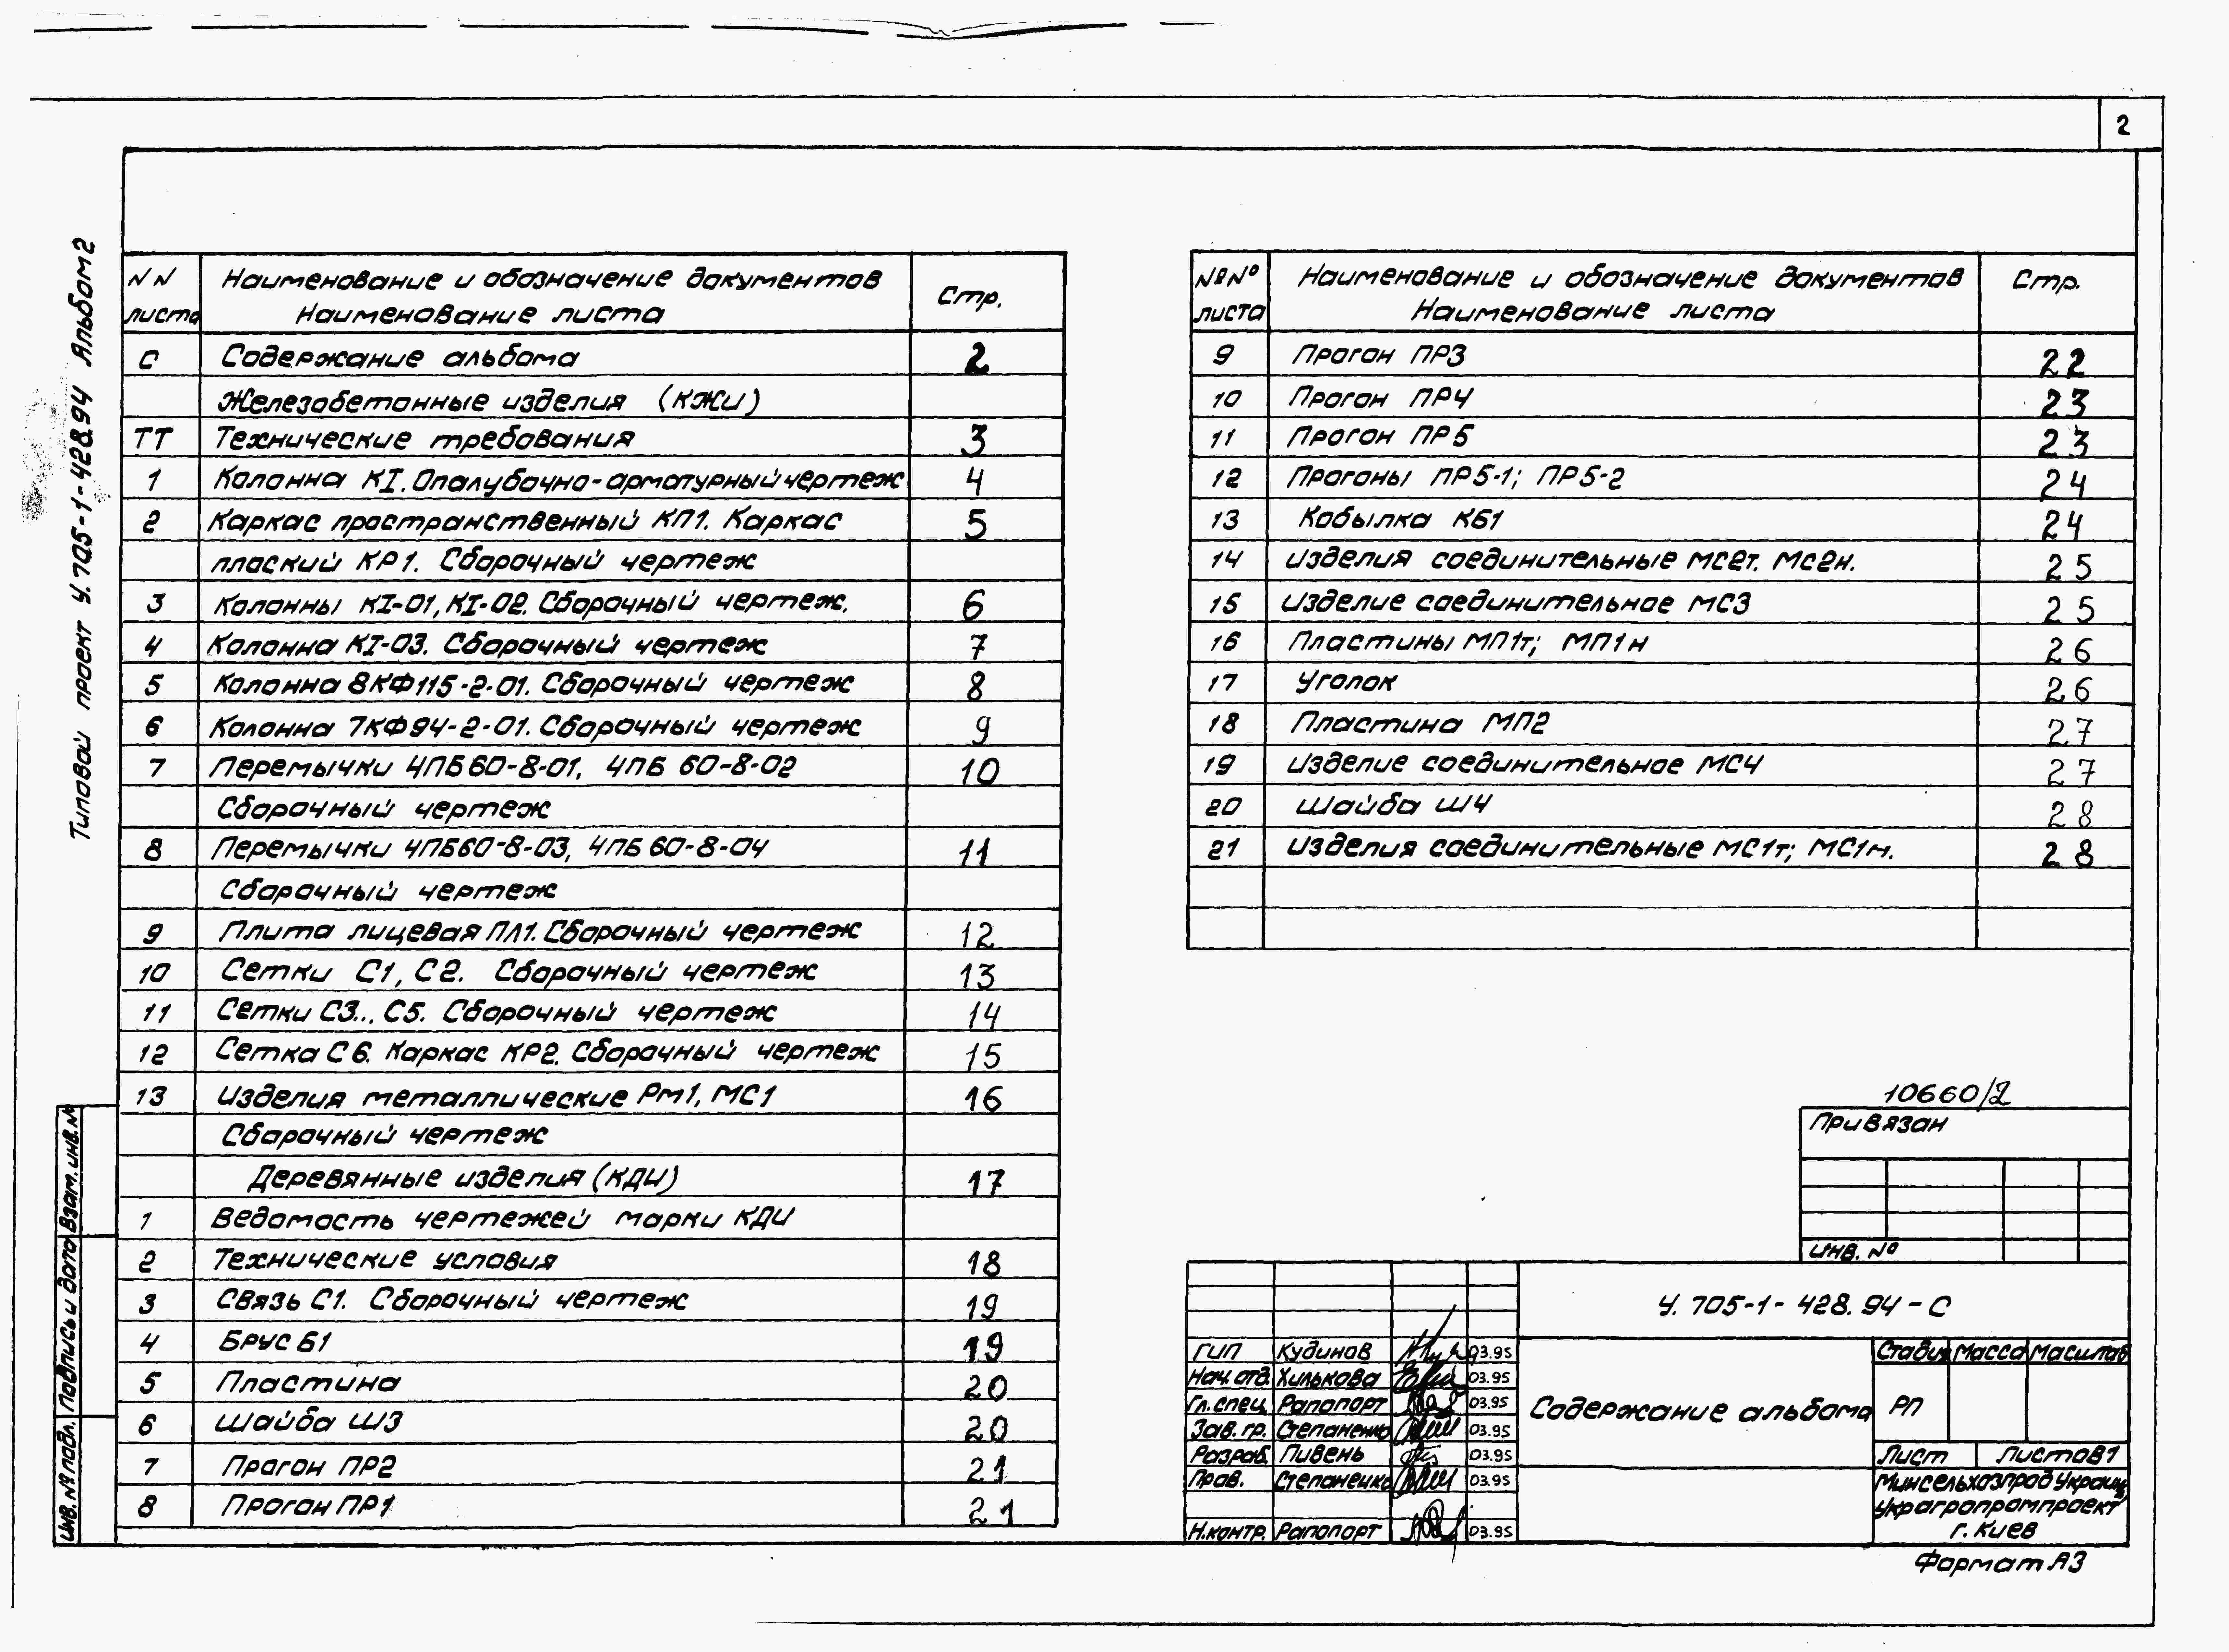 2
Типовой проект У.705-1-428.94 Альбом 2
NN листа | Наименование и обозначение документов Наименование листа | Стр.
С | Содержание альбома | 2
Железобетонные изделия (КЖИ)
ТТ | Технические требования | 3
1 | Колонна КI. Опалубочно-арматурный чертеж | 4
2 | Каркас пространственный КП1. Каркас | 5
плоский КР1. Сборочный чертеж
3 | Колонны КI-01, КI-02. Сборочный чертеж. | 6
4 | Колонна КI-03. Сборочный чертеж | 7
5 | Колонна 8КФ115-2-01. Сборочный чертеж | 8
6 | Колонна 7КФ94-2-01. Сборочный чертеж | 9
7 | Перемычки 4ПБ60-8-01, 4ПБ 60-8-02 | 10
Сборочный чертеж
8 | Перемычки 4ПБ60-8-03, 4ПБ 60-8-04 | 11
Сборочный чертеж
9 | Плита лицевая ПЛ1. Сборочный чертеж | 12
10 | Сетки С1, С2. Сборочный чертеж | 13
11 | Сетки С3... С5. Сборочный чертеж | 14
12 | Сетка С6. Каркас КР2. Сборочный чертеж | 15
13 | Изделия металлические Рм1, МС1 | 16
Сборочный чертеж
Деревянные изделия (КДИ) | 17
1 | Ведомость чертежей марки КДИ
2 | Технические условия | 18
3 | Связь С1. Сборочный чертеж | 19
4 | Брус Б1 | 19
5 | Пластина | 20
6 | Шайба Ш3 | 20
7 | Прогон ПР2 | 21
8 | Прогон ПР1 | 21
№№ листа | Наименование и обозначение документов Наименование листа | Стр.
9 | Прогон ПР3 | 22
10 | Прогон ПР4 | 23
11 | Прогон ПР5 | 23
12 | Прогоны ПР5-1; ПР5-2 | 24
13 | Кобылка КБ1 | 24
14 | Изделия соединительные МС2т. МС2н. | 25
15 | Изделие соединительное МС3 | 25
16 | Пластины МП1т; МП1н | 26
17 | Уголок | 26
18 | Пластина МП2 | 27
19 | Изделие соединительное МС4 | 27
20 | Шайба Ш4 | 28
21 | Изделия соединительные МС1т; МС1н. | 28
10660/2
Привязан
Инв. №
У. 705-1-428.94-С
ГИП | Кудинов | 03.95
Нач. отд. | Хилькова | 03.95
Гл. спец. | Рапопорт | 03.95
Зав. гр. | Степаненко | 03.95
Разраб. | Пивень | 03.95
Пров. | Степаненко | 03.95
Н.контр. | Рапопорт | 03.95
Содержание альбома
Стадия | Масса | Масштаб
РП
Лист | Листов 1
Минсельхозпрод Украины
Украгропромпроект
г. Киев
Формат А3
Инв. № подл. | Подпись и дата | Взам. инв. №